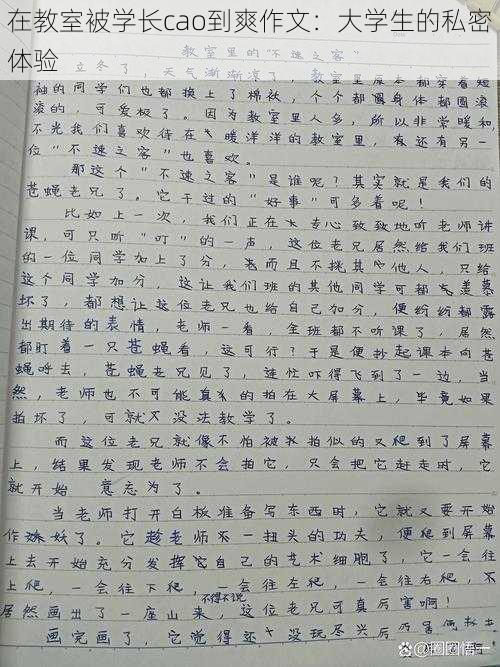 在教室被学长cao到爽作文：大学生的私密
体验
教室里的“不速之客”
立冬了，天气渐渐凉了，教室里原本都穿着短
袖的同学们也都换上了棉袄，个个都圈身体都圆滚
滚的，可爱极了。因为教室里人多，所以非常暖和
不光我们喜欢待在大暖洋洋的教室里，有还有另一
位“不速之客”也喜欢。
那这个“不速之客”是谁呢？其实就是我们的
苍蝇老兄了。它干过的“好事”可多着呢！
比如上一次，我们正在大专心致致地听老师讲
课，可只听“叮”的一声，这位老兄居然给我们班
的一位同学加上了分，老而且不挑其他人，只给
这个同学加分，这让我们班的其他同学可都气羡慕
坏了，都想让这位老兄也给自己加分，便纷纷都露
出期待的表情，老师一看，全班都不听课了，居然
都盯着一只苍蝇看，这可行？于是便抄起课本向苍
蝇呼去，苍蝇老兄见了，连忙吓得飞到了一边，当
然，老师也不可能真的拍在大屏幕上，毕竟如果
拍坏了，可就没法教学了。
而这位老兄就像不怕被拍似的又爬到了屏幕
上，结果发现老师不会拍它，只会把它赶走时，它
就开始 意忘为了。
当老师打开白板准备写东西时，它就又要开始
作妖了。它趁老师不一扭头的功夫，便爬到屏幕
上去开始充分发挥它自己的艺术细胞了，它一会往
上爬，一会往下爬，一会往左爬，一会往右爬，不
不得不说
居然画出了一座山来，这位老兄可真厉害啊！
画完画了，它觉得还没玩尽兴
@圈圈悟一